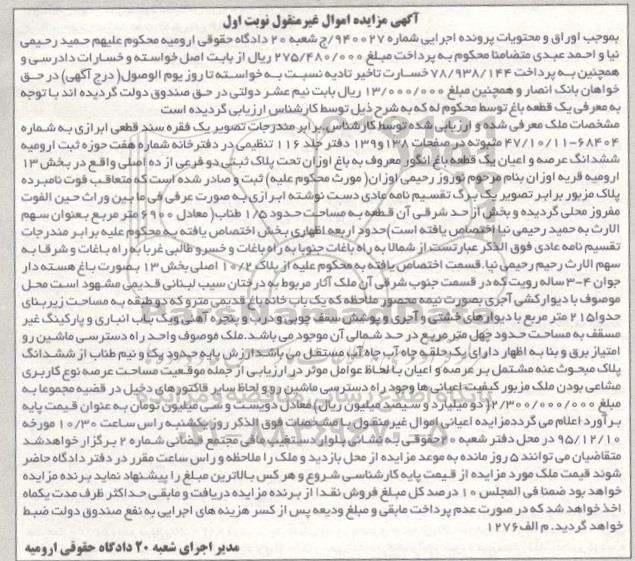 آگهی مزایده اموال غیرمنقول نوبت اول
بموجب اوراق و محتویات پرونده اجرایی شماره ۹۴۰۰۲۷/ج شعبه ۲۰ دادگاه حقوقی ارومیه محکوم علیهم حمید رحیمی
نیا و احمد عبدی متضامنا محکوم به پرداخت مبلغ ۲۷۵/۴۸۰/۰۰۰ ریال از بابت اصل خواسته و خسارات دادرسی و
همچنین به پرداخت ۷۸/۹۳۸/۱۴۴ خسارت تاخیر تادیه نسبت به خواسته تا روز یوم الوصول( درج آگهی) در حق
خواهان بانک انصار و همچنین مبلغ ۱۳/۰۰۰/۰۰۰ ریال بابت نیم عشر دولتی در حق صندوق دولت گردیده اند با توجه
به معرفی یک قطعه باغ توسط محکوم له که به شرح ذیل توسط کارشناس ارزیابی گردیده است
مشخصات ملک معرفی شده و ارزیابی شده توسط کارشناس.برابر مندرجات تصویر یک فقره سند قطعی ابرازی به شماره
۶۸۴۰۴-۴۷/۱۰/۱۱ مثبوته در صفحات ۱۳۸و۱۳۹ دفتر جلد ۱۱۶ تنظیمی در دفترخانه شماره هفت حوزه ثبت ارومیه
ششدانگ عرصه و اعیان یک قطعه باغ انگور معروف به باغ اوزان تحت پلاک ثبتی دو فرعی از ده اصلی واقع در بخش ۱۳
ارومیه قریه اوزان بنام مرحوم نوروز رحیمی اوزان( مورث محکوم علیه) ثبت و صادر شده است که متعاقب فوت نامبرده
پلاک مزبور برابر تصویر یک برگ تقسیم نامه عادی دست نوشته ابرازی به صورت عرفی فی ما بین وراث حین الفوت
مفروز محلی گردیده و بخش از حد شرقی آن قطعه به مساحت حدود ۱/۵ طناب( معادل ۶۹۰۰ متر مربع بعنوان سهم
الارث به حمید رحیمی نیا اختصاص یافته است)حدود اربعه اظهاری بخش اختصاص یافته به محکوم علیه برابر مندرجات
تقسیم نامه عادی فوق الذکر عبارتست از شمالا به راه باغات جنوبا به راه باغات و خسرو طالبی غربا به راه باغات و شرقا به
سهم الارث رحیم رحیمی نیا.قسمت اختصاص یافته به محکوم علیه از پلاک ۱۰/۲ اصلی بخش ۱۳ بصورت باغ هسته دار
جوان ۴-۳ ساله رویت که در قسمت جنوب شرقی آن ملک آثار مربوط به درختان سیب لبنانی قدیمی مشهود است محل
موصوف با دیوارکشی آجری بصورت نیمه محصور ملاحظه که یک باب خانه باغ قدیمی مترو که دو طبقه به مساحت زیربنای
حدوا ۲۱۵ متر مربع با دیوارهای خشتی و آجری و پوشش سقف چوبی و درب و پنجره آهنی ویک باب انباری و پارکینگ غیر
مسقف به مساحت حدود چهل متر مربع در حد شمالی آن موجود می باشد.ملک موصوف واحد راه دسترسی ماشین رو و
امتیاز برق و بنا به اظهار دارای یک حلقه چاه آب چاه آب مستقل می باشد ارزش پایه حدود یک و نیم طناب از ششدانگ
پلاک مبحوث عنه مشتمل بر عرصه و اعیان با لحاظ عوامل موثر در ارزیابی از جمله موقعیت مساحت عرصه نوع کاربری
مشاعی بودن ملک مزبور کیفیت اعیانی ها وجود راه دسترسی ماشین رو و لحاظ سایر فاکتورهای دخیل در قضیه مجموعا به
مبلغ ۲/۳۰۰/۰۰۰/۰۰۰( دو میلیارد و سیصد میلیون ریال) معادل دویست و سی میلیون تومان به عنوان قیمت پایه
برآورد اعلام می گردد مزایده اعیانی اموال غیرمنقول با مشخصات فوق الذکر روز یکشنبه راس ساعت ۱۰/۳۰ مورخه
۹۵/۱۲/۱۰ در محل دفتر شعبه ۲۰ حقوقی به نشانی بلوار مجتمع قضائی شماره ۲ برگزار خواهد شد
متقاضیان می توانند ۵ روز مانده به موعد مزایده از محل بازدید و ملک را ملاحظه و راس ساعت مقرر در دفتر دادگاه حاضر
شوند قیمت ملک مورد مزایده از قیمت پایه کارشناسی شروع و هر کس بالاترین مبلغ را پیشنهاد نماید برنده مزایده
خواهد بود ضمنا فی المجلس ۱۰ درصد کل مبلغ فروش نقدا از برنده مزایده دریافت و مابقی حداکثر ظرف مدت یکماه
اخذ خواهد شد که در صورت عدم پرداخت مابقی و مبلغ ودیعه پس از کسر هزینه های اجرایی به نفع صندوق دولت ضبط
خواهد گردید. م الف ۱۲۷۶
مدیر اجرای شعبه ۲۰ دادگاه حقوقی ارومیه